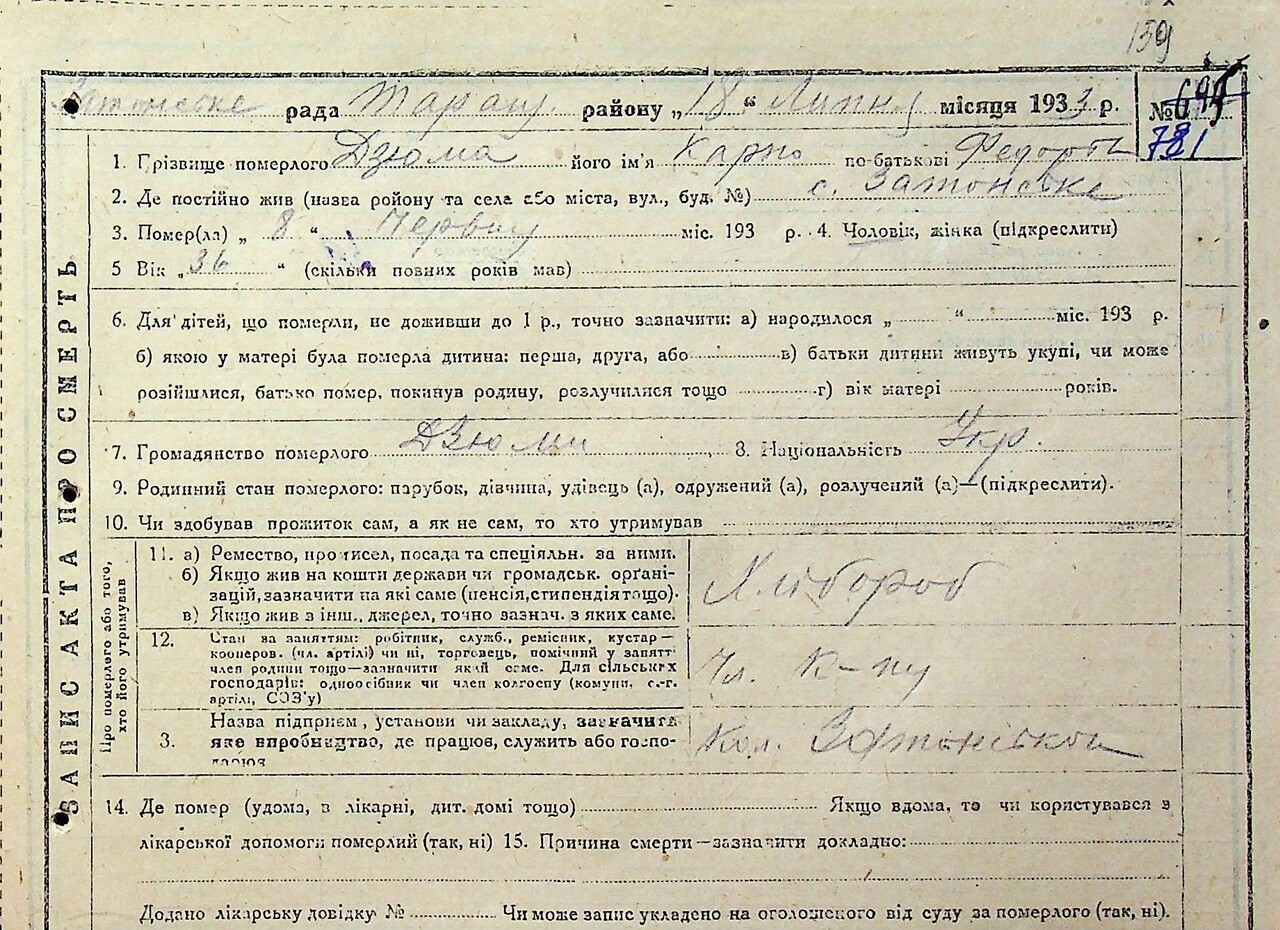 159
Затонське рада Таращ. району „18“ Липня місяця 1933 р. № 781
ЗАПИС АКТА ПРО СМЕРТЬ
1. Грізвище померлого Дзюма його ім'я Карпо по-батькові Федоров
2. Де постійно жив (назва району та села або міста, вул., буд. №) с. Затонське
3. Помер(ла) „ 8 “ Червня міс. 193 р. 4. Чоловік, жінка (підкреслити)
5 Вік „36 “ (скільки повних років мав)
6. Для дітей, що померли, не доживши до 1 р., точно зазначити: а) народилося „ “ міс. 193 р.
б) якою у матері була померла дитина: перша, друга, або в) батьки дитини живуть укупі, чи може
розійшлися, батько помер, покинув родину, розлучилися тощо г) вік матері років.
7. Громадянство померлого Дзюми 8. Національність Укр.
9. Родинний стан померлого: парубок, дівчина, удівець (а), одружений (а), розлучений (а)—(підкреслити).
10. Чи здобував прожиток сам, а як не сам, то хто утримував
Про померлого або того,
хто його утримував
11. а) Ремество, промисел, посада та спеціяльн. за ними.
б) Якщо жив на кошти держави чи громадськ. орґані-
зацій, зазначити на які саме (пенсія, стипендія тощо).
в) Якщо жив з інш., джерел, точно зазнач. з яких саме.
Хлібороб
12. Стан за заняттям: робітник, служб., ремісник, кустар—
кооперов. (чл. артілі) чи ні, торговець, помічний у занятт
член родини тощо—зазначити який саме. Для сільських
господарів: одноосібник чи член колгоспу (комуни, с.-г.
артілі, СОЗ'у)
Чл. к-пу
3. Назва підприєм, установи чи закладу, зазначити
яке виробництво, де працює, служить або госпо-
дарює
Кол.
14. Де помер (удома, в лікарні, дит. домі тощо) Якщо вдома, то чи користувався з
лікарської допомоги померлий (так, ні) 15. Причина смерти—зазначити докладно:
Додано лікарську довідку № Чи може запис укладено на оголошеного від суду за померлого (так, ні).